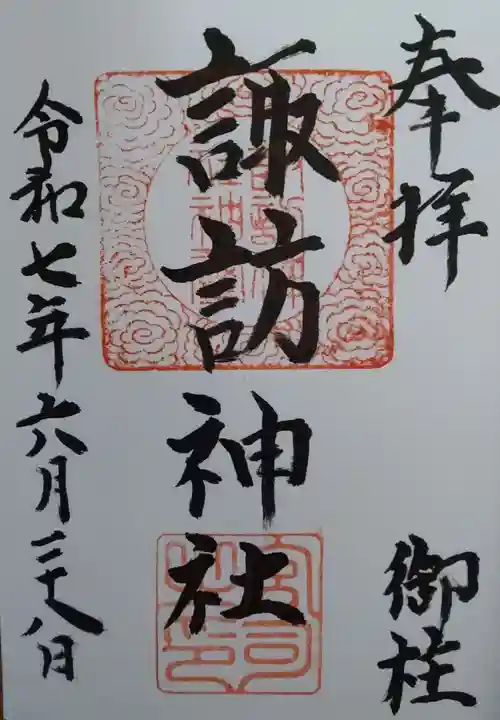 奉拝
御柱
諏訪神社
宮司之印
令和七年六月二十八日